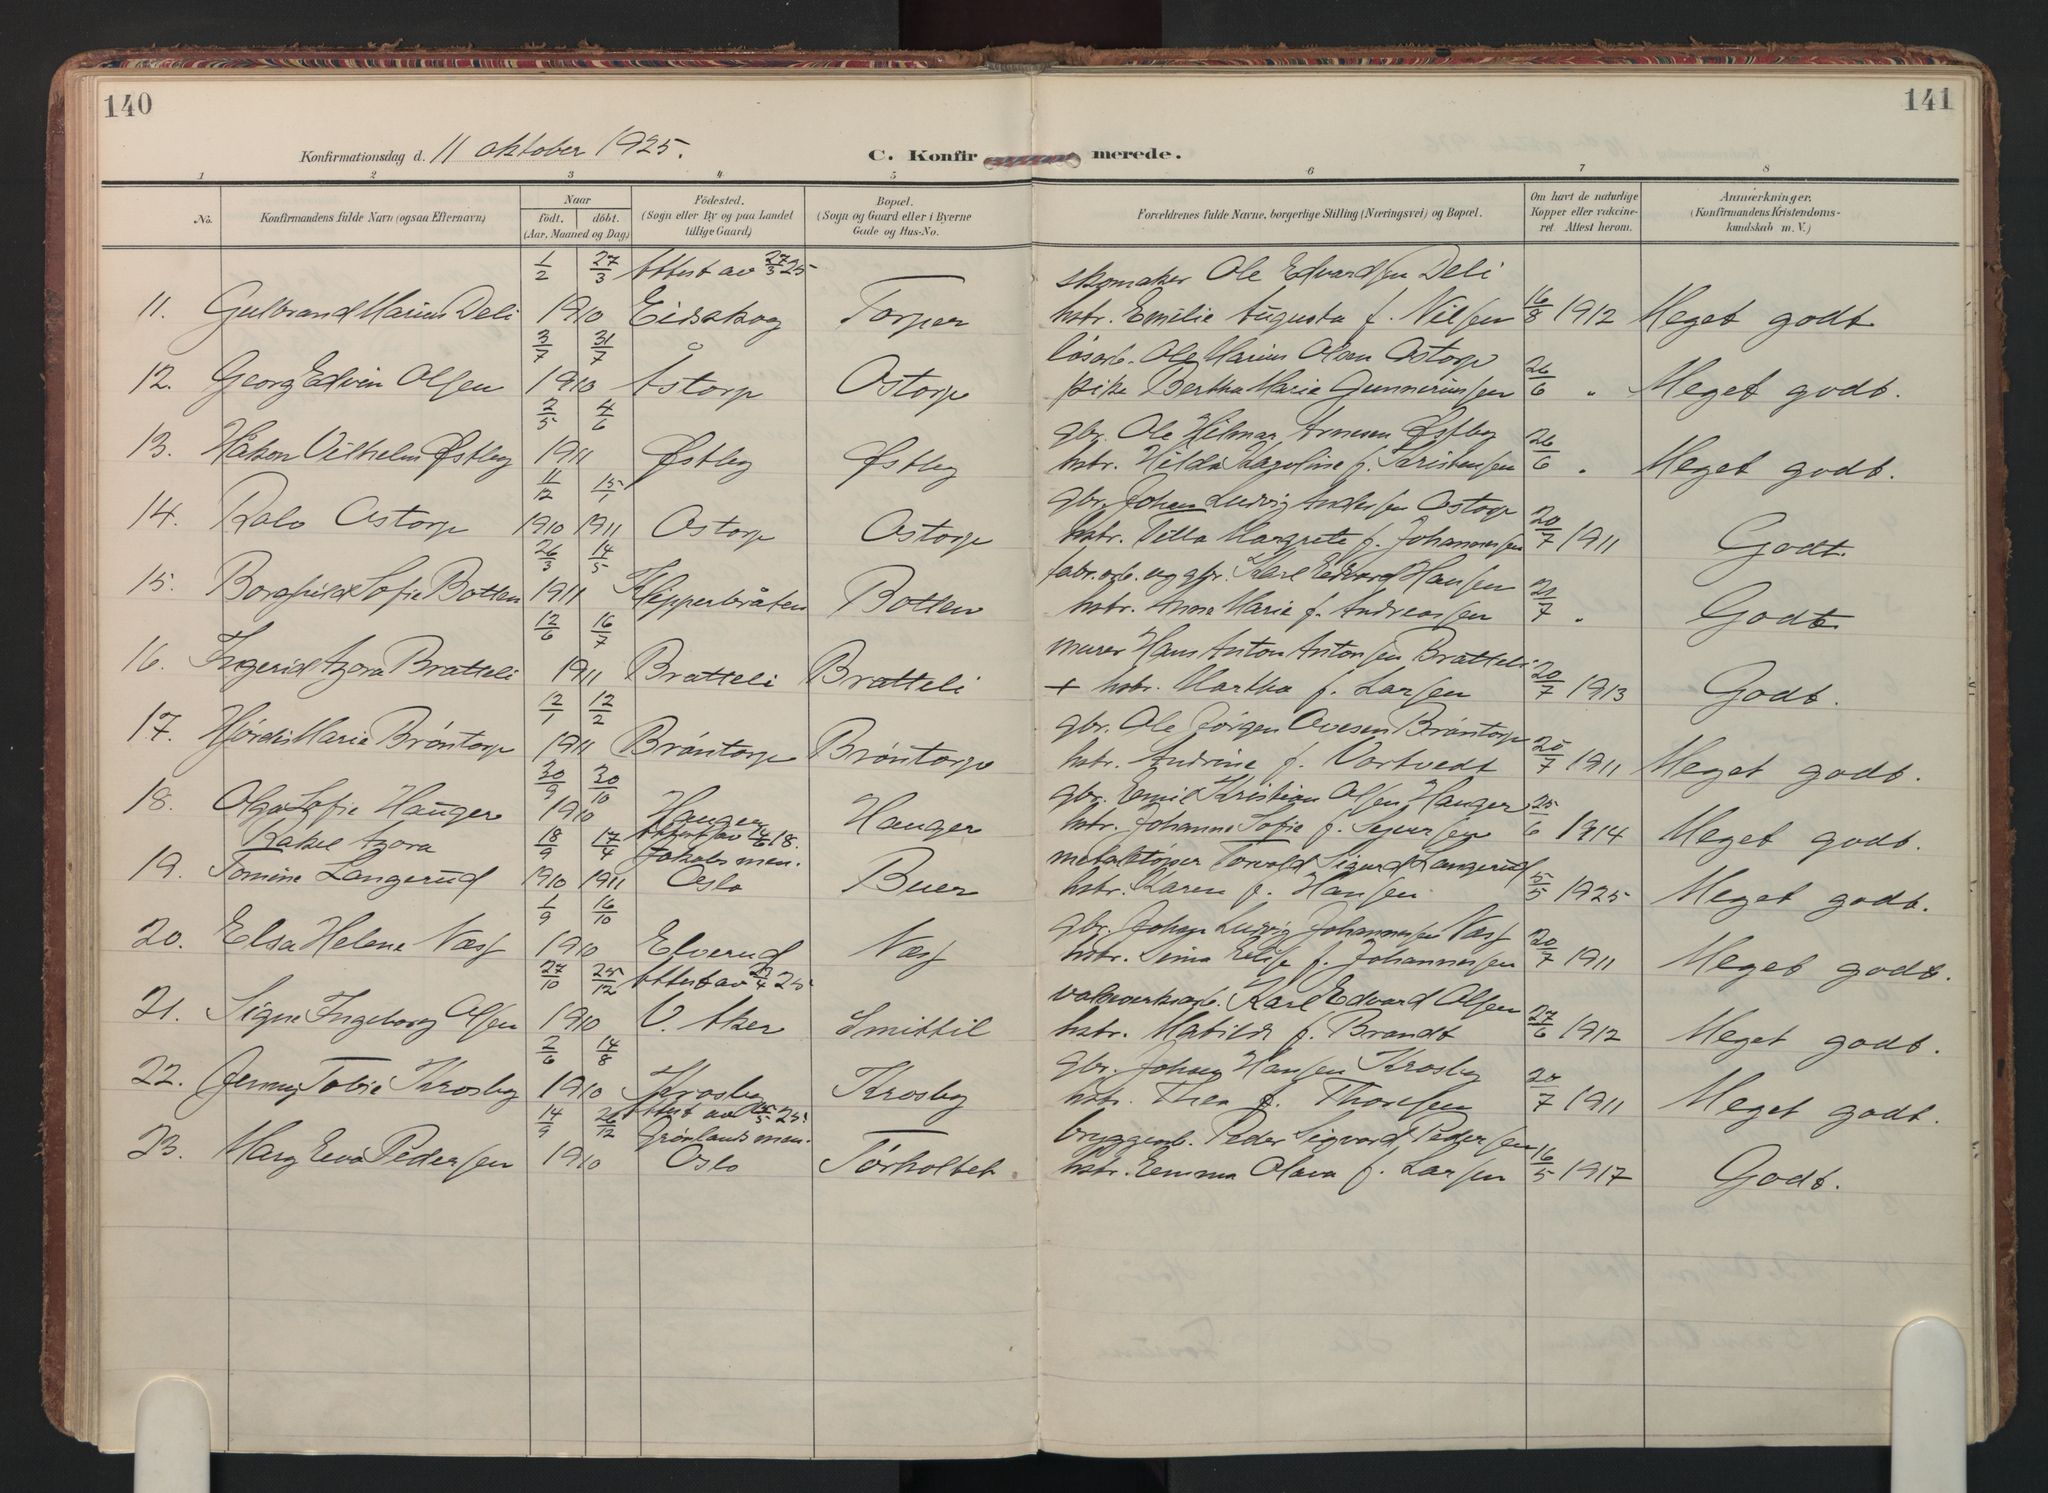 140
141
Konfirmationsdag d. 11 oktober 1925.
C. Konfirmerede.
1 2 3 4 5 6 7 8
No.
Konfirmandens fulde Navn (ogsaa Efternavn)
Naar
født. døbt.
(Aar, Maaned og Dag)
Fødested.
(Sogn eller By og paa Landet
tillige Gaard)
Bopæl.
(Sogn og Gaard eller i Byerne
Gade og Hus-No.
Forældrenes fulde Navne, borgerlige Stilling (Næringsvei) og Bopæl.
Om havt de naturlige
Kopper eller vakcine-
ret. Attest herom.
Anmærkninger.
(Konfirmandens Kristendoms-
kundskab m. V.)
1/2 27/3 Attest av 27/3 25 skomaker Ole Edvardsen Deli
11. Gulbrand Marius Deli 1910 Eidskog Torper hstr. Emilie Augusta f. Nilsen 16/8 1912 Meget godt
3/7 31/7 løsarb. Ole Marius Olsen Ostorp
12. Georg Edvin Olsen 1910 Åstorp Ostorp pike Bertha Marie Gunneriussen 26/6 " Meget godt.
2/5 4/6 gbr. Ole Hilmar Arnesen Østby
13. Håkon Vilhelm Østby 1911 Østby Østby hstr. Hilda Karoline f. Kristensen 26/6 " Meget godt.
11/12 15/1 gbr. Johan Ludvig Andersen Ostorp
14. Ostorp 1910 1911 Ostorp Ostorp hstr. Margrete f. Johannessen 20/7 1911 Godt.
26/3 14/5 fabr.arb. og gbr. Karl Edvard Hansen
15. Borghild Sofie Botten 1911 Klepperbråten Botten hstr. Anna Marie f. Andreassen 21/7 " Godt
12/6 16/7 murer Hans Anton Antonsen Bratteli
16. Ingerid Azora Bratteli 1911 Bratteli Bratteli + hstr. Martha f. Larsen 20/7 1913 Godt.
2/1 12/2 gbr. Ole Jörgen Ovesen Bröntorp
17. Hjördis Marie Bröntorp 1911 Bröntorp Bröntorp hstr. Andrine f. Vortvedt 20/7 1911 Meget godt.
30/9 30/10 gbr. Emil Kristian Olsen Hauger
18. Olga Sofie Hauger 1910 Hauger Hauger hstr. Johanne Sofie f. 25/6 1914 Meget godt.
Rakel Azora 18/9 17/4 Attest av 14/6 18. Jakobs men. metalstøper Torvald Sigurd Langerud
19. Tomine Langerud 1910 1911 Oslo Buer hstr. Karen f. Hansen 5/5 1925 Meget godt.
1/9 16/10 gbr. Johan Ludvig Johannessen Næss
20. Elsa Helene Næss 1910 Elverud Næss hstr. Elise f. Johannessen 20/7 1911 Meget godt.
27/10 25/12 Attest av 29/4 25 Karl Edvard Olsen
21. Signe Ingeborg Olsen 1910 V. Aker Smittil hstr. Matilda f. Brandt 27/6 1912 Meget godt.
2/6 14/8 gbr. Johan Hansen Krosby
22. Jenny Tobie Krosby 1910 Krosby Krosby hstr. Thea f. Thoresen 20/7 1911 Meget godt.
14/9 26/12 Attest av 15/5 25. Grønlands men. bryggearb. Peder Sigvard Pedersen
23. Mary Eva Pedersen 1910 Oslo Torholtet hstr. Emma Olava f. Larsen 16/5 1917 Godt.